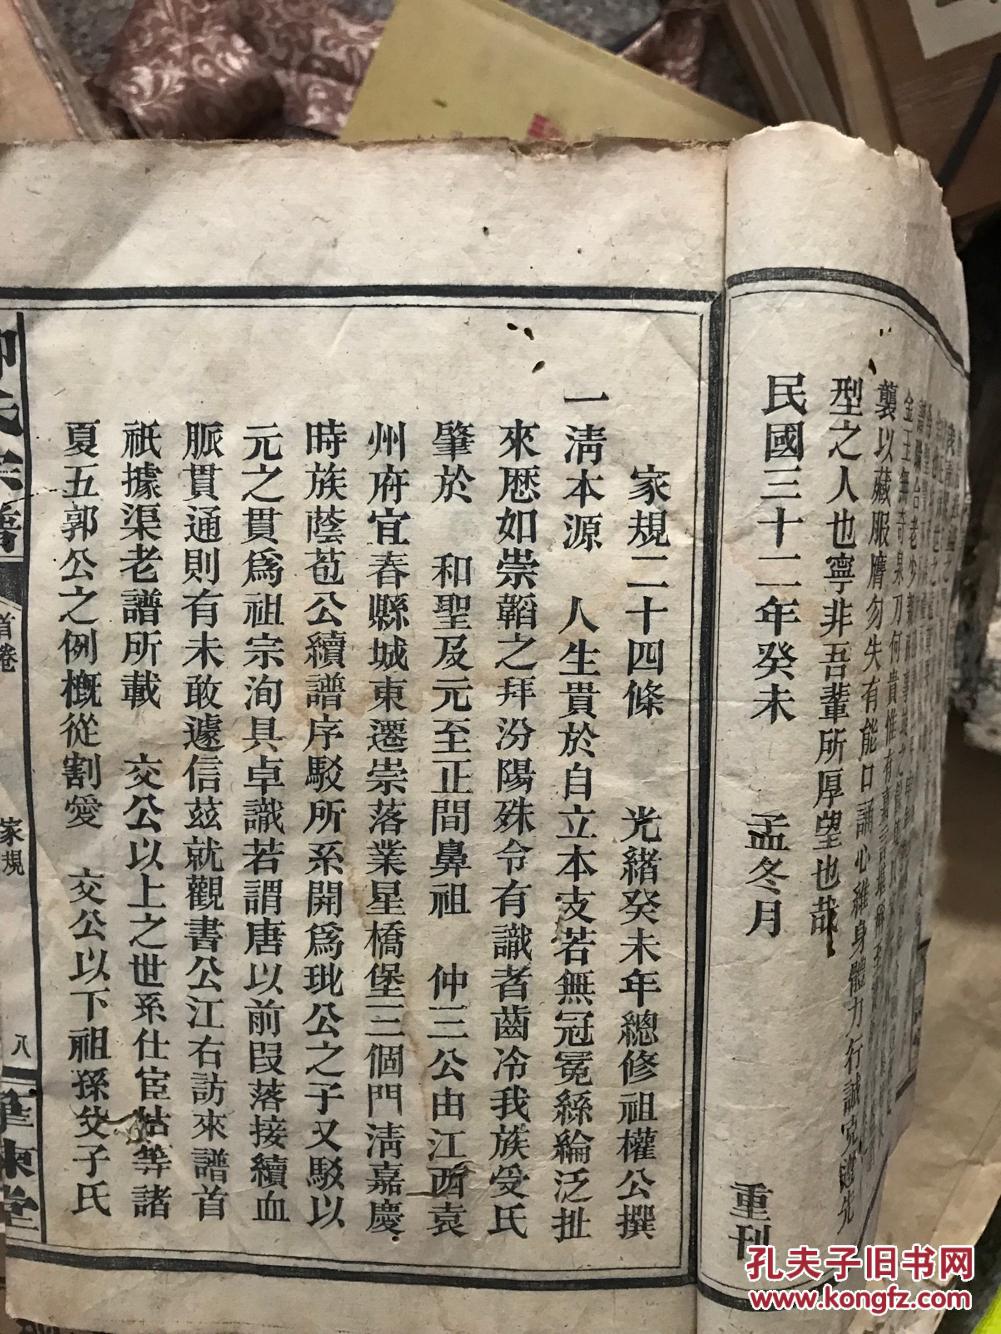 襲以藏服膺勿失有能口誦心維身體力行誠
型之人也寧非吾輩所厚望也哉
民國三十二年癸未 孟冬月 重刊
家規二十四條 光緒癸未年總修祖權公撰
一淸本源 人生貴於自立本支若無冠冕絲綸泛扯
來歷如崇韜之拜汾陽殊令有識者齒冷我族受氏
肇於 和聖及元至正間鼻祖 仲三公由江西袁
州府宜春縣城東遷崇落業星橋堡三個門淸嘉慶
時族蔭苞公續譜序駁所系開爲玭公之子又駁以
元之貫爲祖宗洵具卓識若謂唐以前段落接續血
脈貫通則有未敢遽信茲就觀書公江右訪來譜首
祇據渠老譜所載 交公以上之世系仕宦姑等諸
夏五郭公之例概從割愛 交公以下祖孫父子氏
首卷
家規
八
孔夫子旧书网
www.kongfz.com